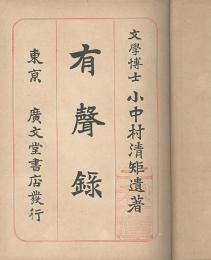 文學博士 小中村清矩遺著
有聲錄
東京 廣文堂書店發行